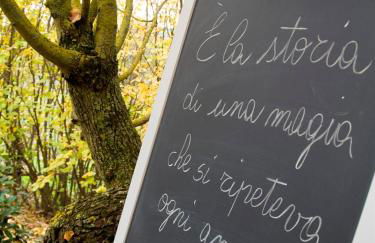 È la storia
di una magia
che si ripeteva
ogni